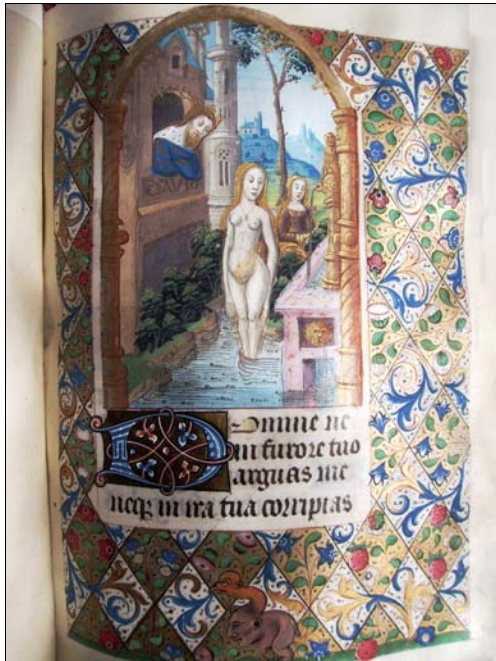 Domine ne
in furore tuo
arguas me
neq in ira tua corripias